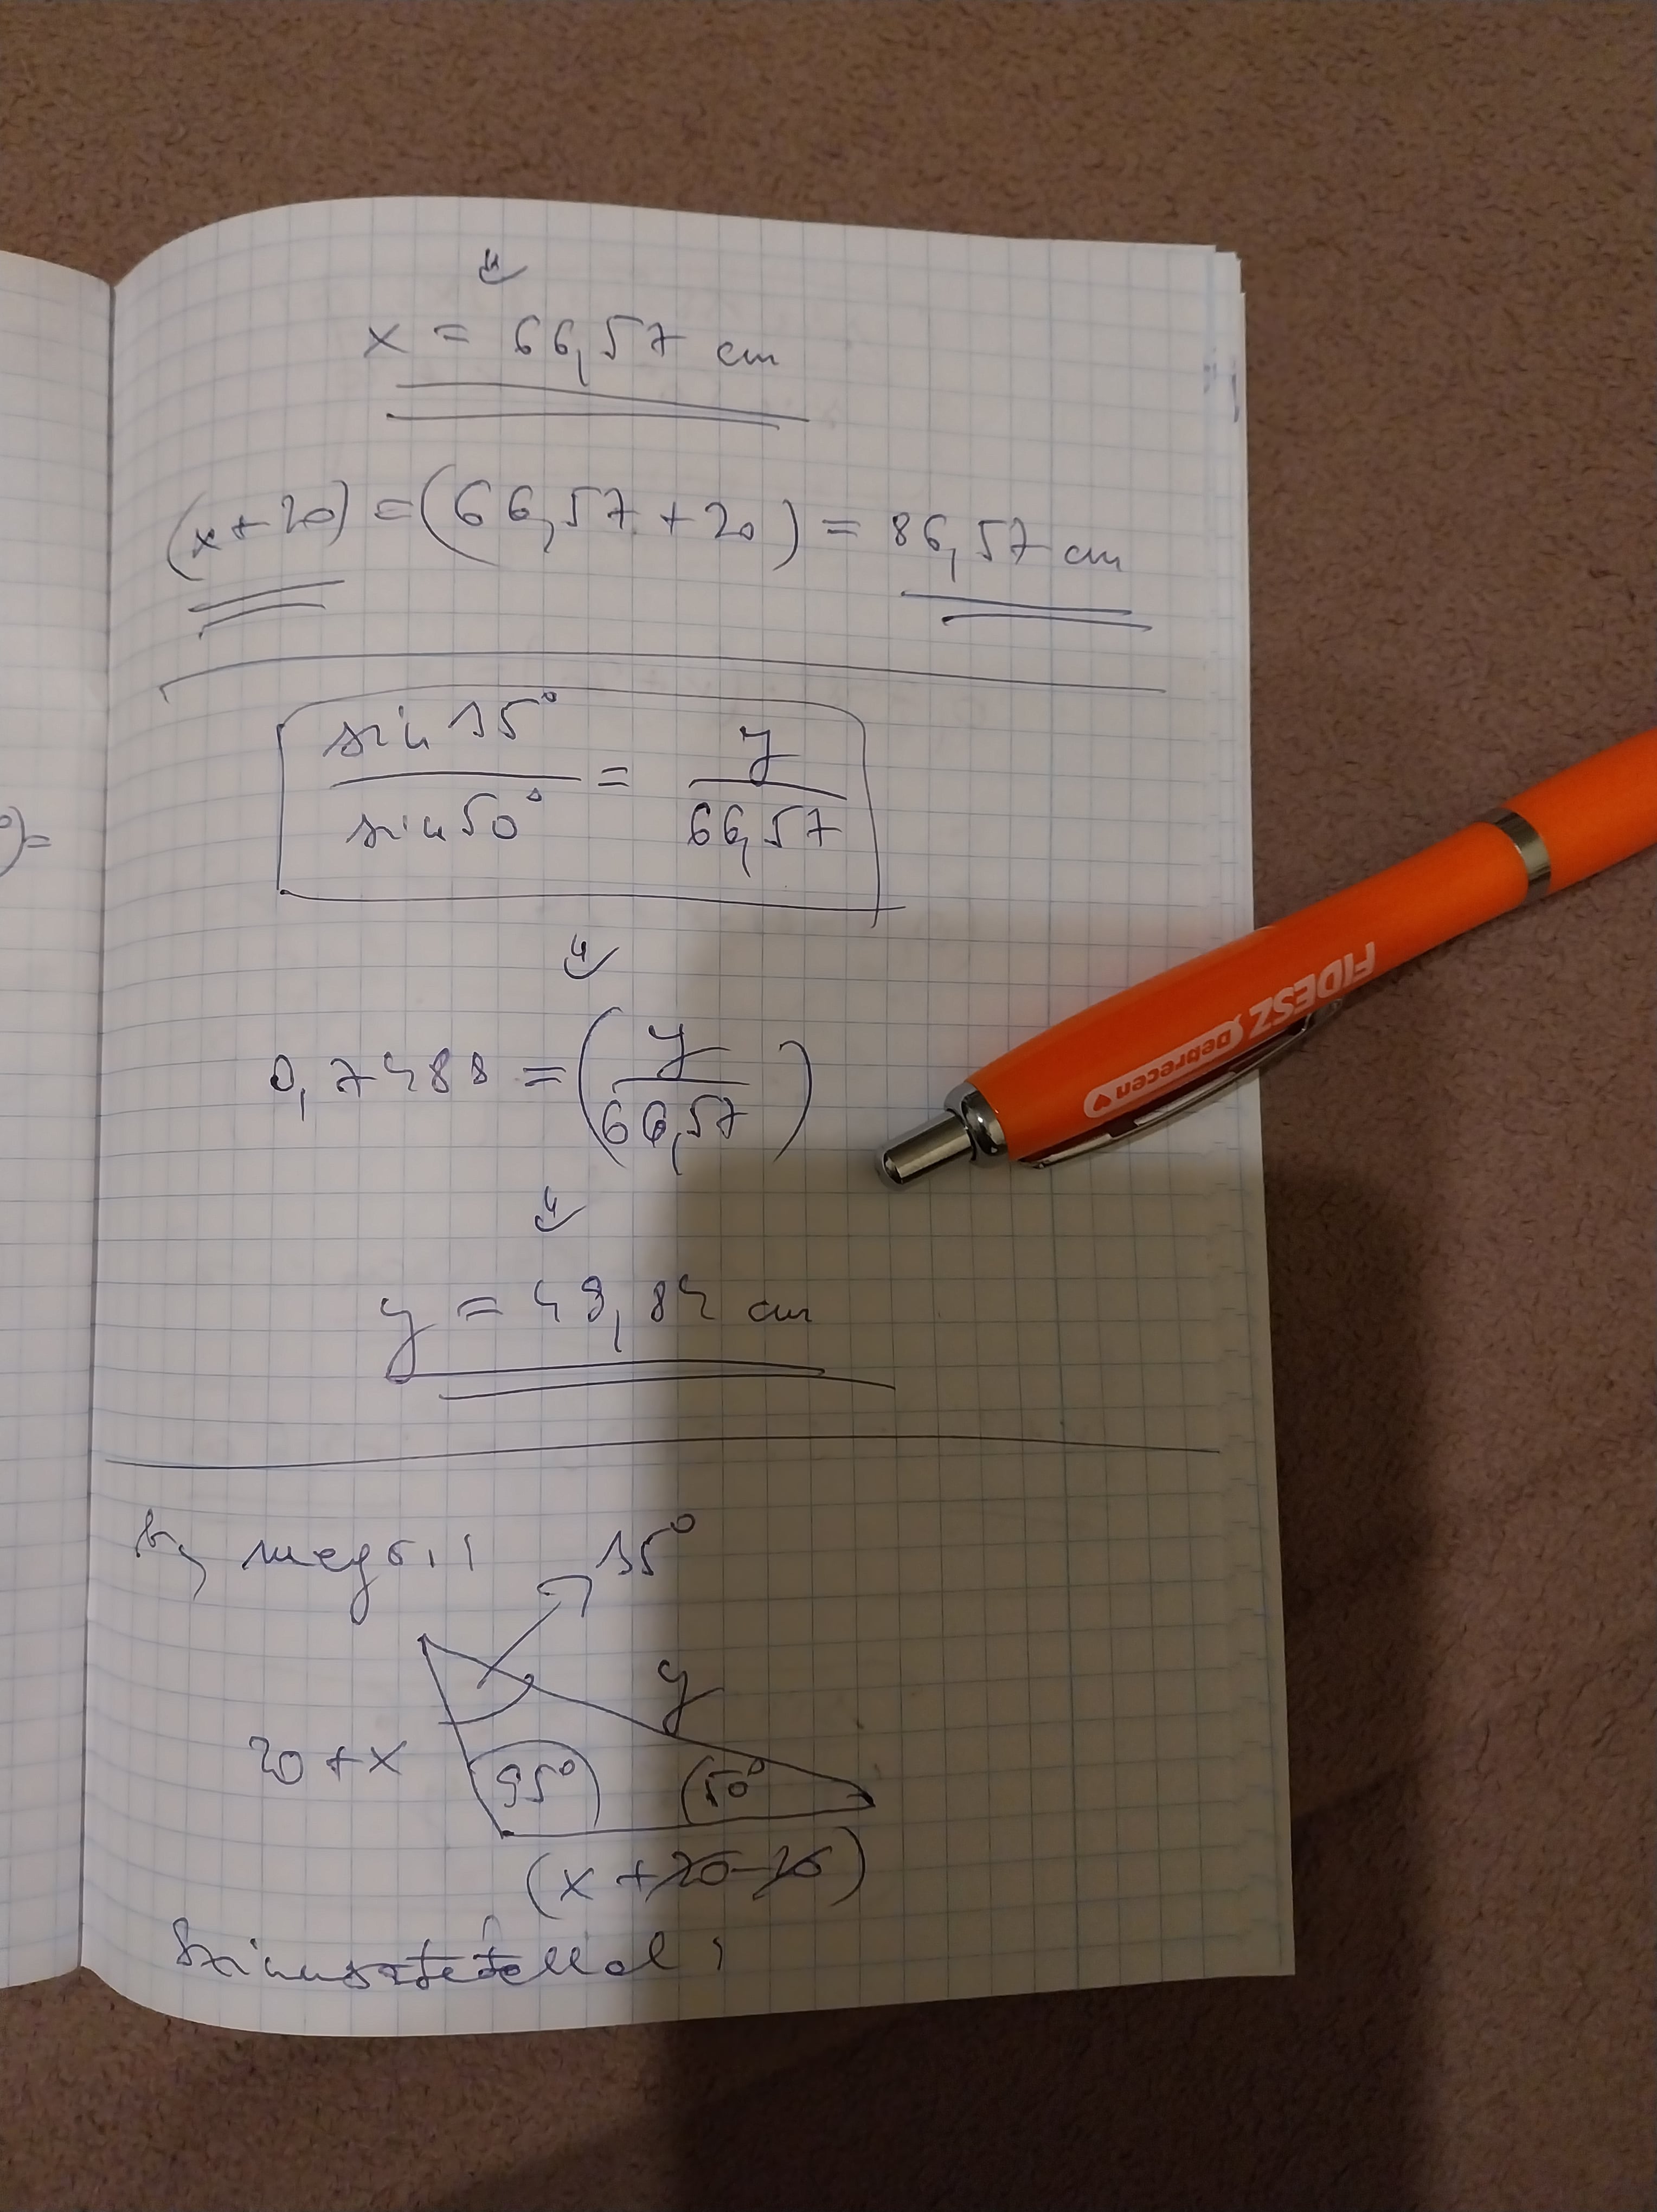 x = 66,57 cm
(x+20) = (66,57 + 20) = 86,57 cm
sin 35° / sin 50° = y / 66,57
0,7488 = (y / 66,57)
y = 49,84 cm
b, mego.:
35°
y
20 + x
95°
50°
(x + 20 - 20)
Szinusztétellel:
)=
FIDESZ
Debrecen